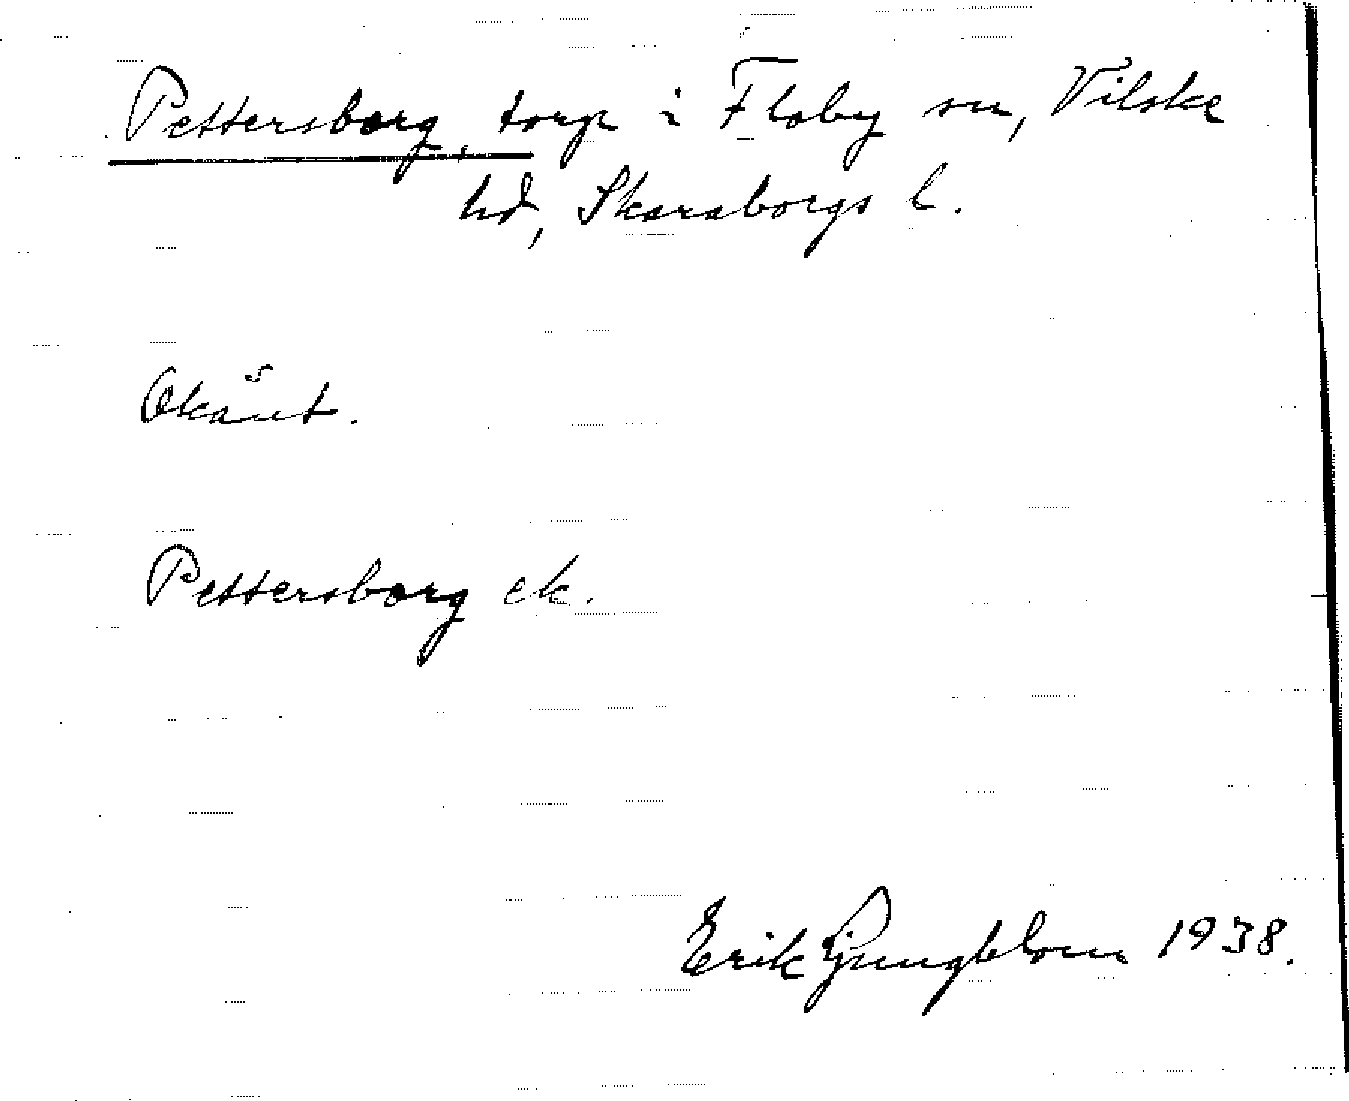 Pettersborg, torp i Floby sn, Vilske
hd, Skaraborgs l.
Okänt.
Pettersborg ek.
Erik Ljungblom 1938.